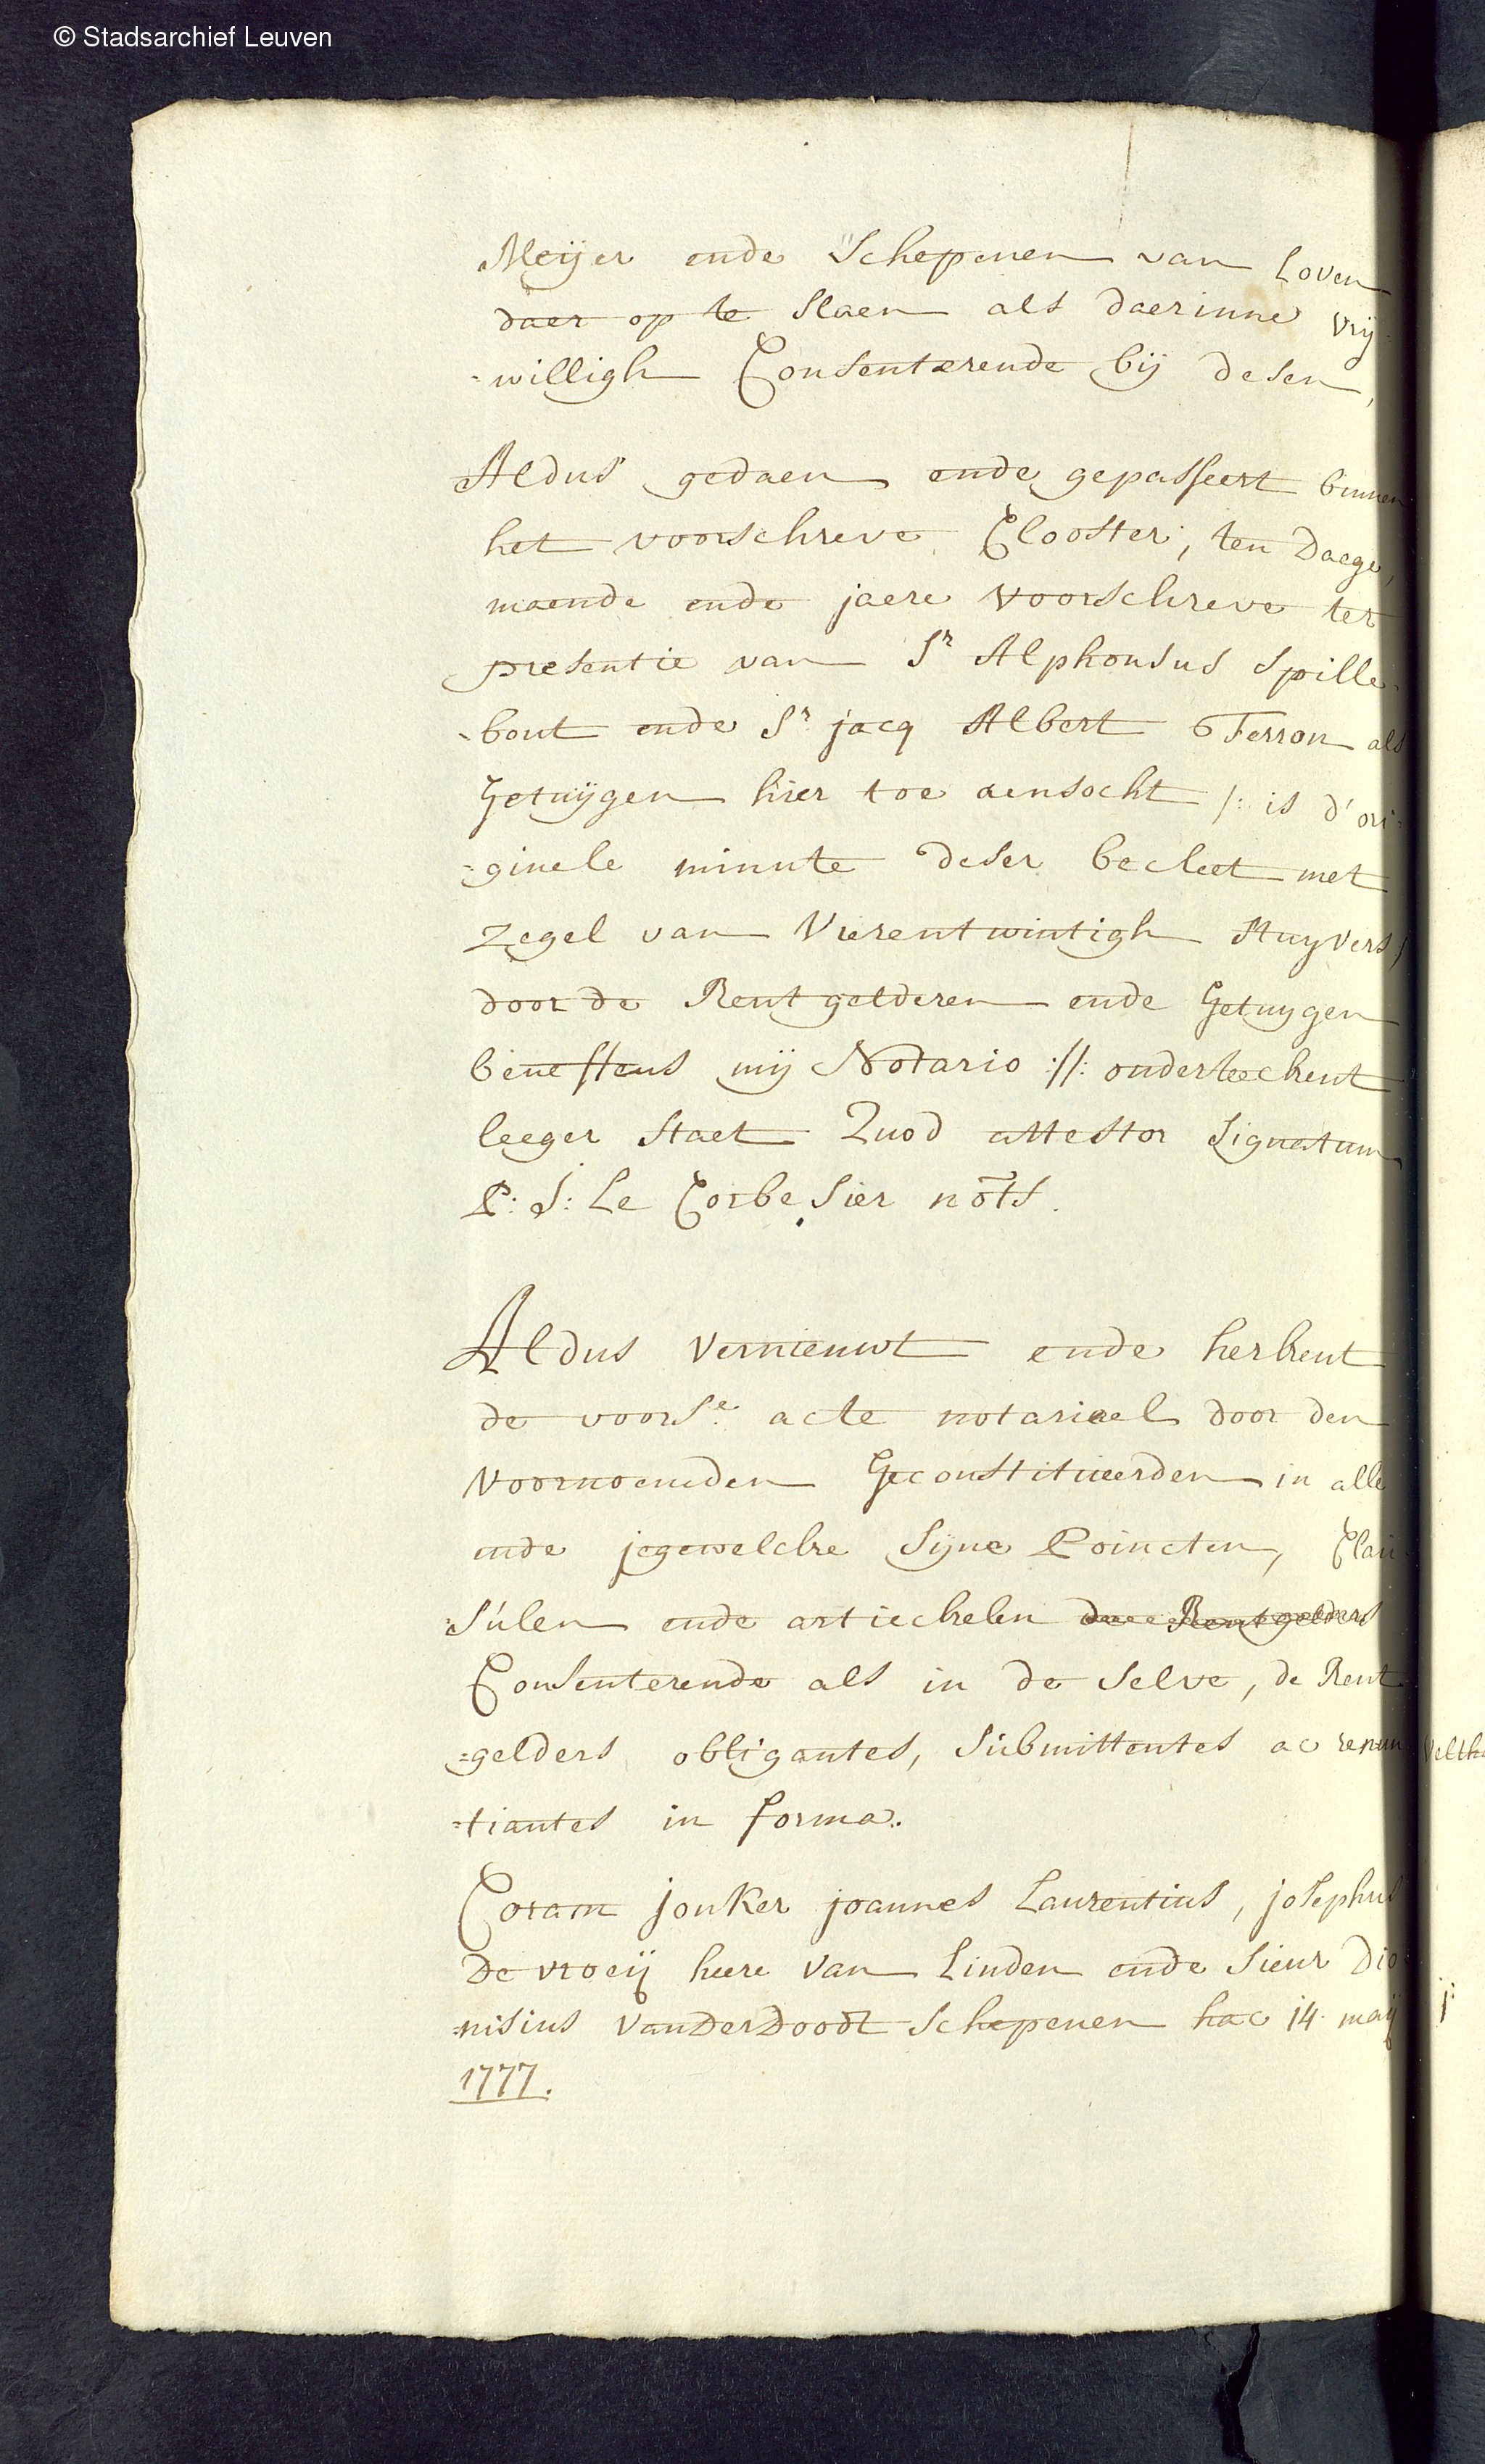 © Stadsarchief Leuven
Meijer ende Schepenen van Loven
daer op te slaen als daerinne vrij-
-willigh Consenterende bij desen,
Aldus gedaen ende gepasseert binnen
het voorschreve Clooster, ten daege,
maende ende jaere voorschreve ter
presentie van Sr Alphonsus Spille-
-bout ende Sr jacq Albert Ferron als
Getuijgen hier toe aensocht /: is d'ori-
-ginele minute deser becleet met
zegel van Vierentwintigh stuyvers,
door de Rentgelderen ende Getuygen
beneffens mij Notario :/: onderteekent
leeger staet Quod attestor Signatum
P: J: Le Corbesier nots.
Aldus vernieuwt ende herkent
de voorse acte notariael door den
voornoemden Geconstitueerden in alle
ende jegewelcke sijne Poincten, Clau-
-sulen ende artieckelen de Rentgelders
Consenterende als in de selve, de Rent
=gelders obligantes, submittentes ac renun
=tiantes in forma.
Coram jonker joannes Laurentius, josephus
De vroeij heere van Linden ende sieur Dio=
=nisius vanderdoodt schepenen hac 14 maij
1777.